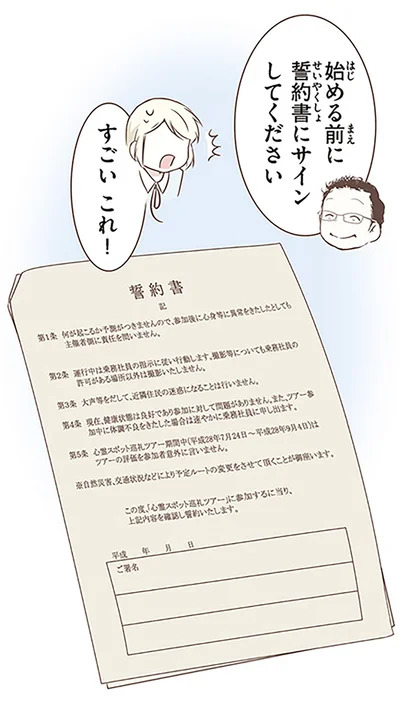 始める前に
誓約書にサイン
してください
すごい これ！
誓約書
記
第1条 何が起こるか予測がつきませんので、参加後に心身等に異常をきたしたとしても
主催者側に責任を問いません。
第2条 運行中は乗務社員の指示に従い行動します。撮影等についても乗務社員の
許可がある場所以外は撮影いたしません。
第3条 大声等をだして、近隣住民の迷惑になることは行いません。
第4条 現在、健康状態は良好であり参加に対して問題がありません。また、ツアー参
加中に体調不良をきたした場合は速やかに乗務社員に申し出ます。
第5条 心霊スポット巡礼ツアー期間中(平成28年7月24日〜平成28年9月4日)は
ツアーの評価を参加者意外に言いません。
※自然災害、交通状況などにより予定ルートの変更をさせて頂くことが御座います。
この度、「心霊スポット巡礼ツアー」に参加するに当り、
上記内容を確認し誓約いたします。
平成 年 月 日
ご署名